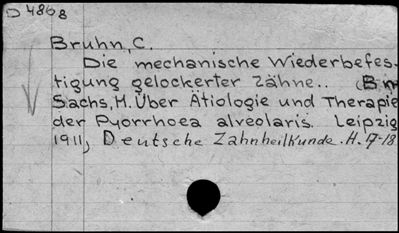 D 4868
Bruhn, C.
Die mechanische Wiederbefes-
tigung gelockerter Zähne.. (B in
Sachs, H. Über Ätiologie und Therapie
der Pyorrhoea alveolaris. Leipzig
1911, Deutsche Zahnheilkunde. H. 17-18